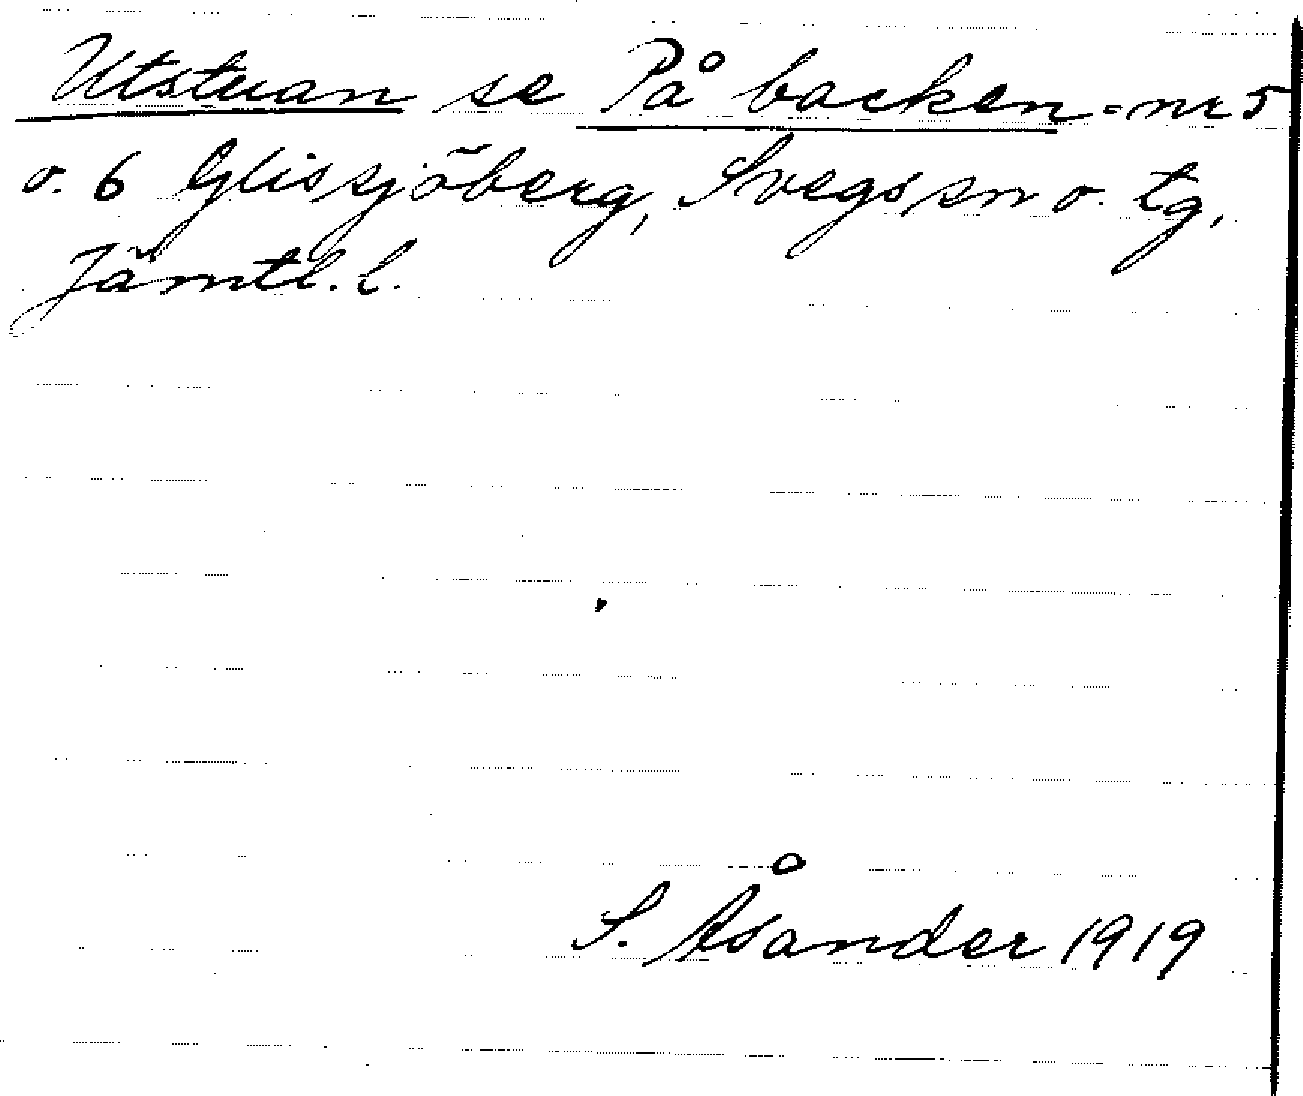 Utstuan se På backen = nr 5
o. 6 Glissjöberg, Svegs sn o. tg,
Jämtl. l.
S. Åsander 1919